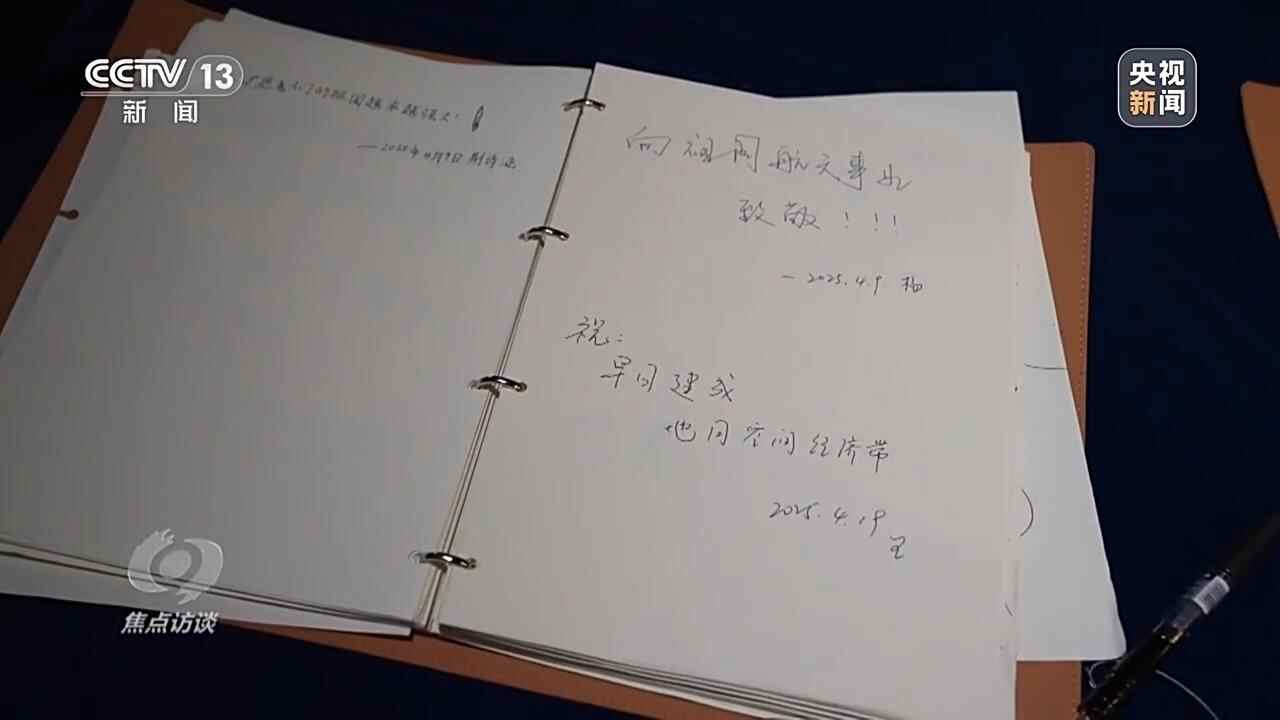 CCTV 13
新闻
央视
新闻
祖国越来越强大！
向祖国航天事业
致敬！！！
—2025.4.9
祝：
早日建成
地月空间经济带
2025.4.19
王
焦点访谈